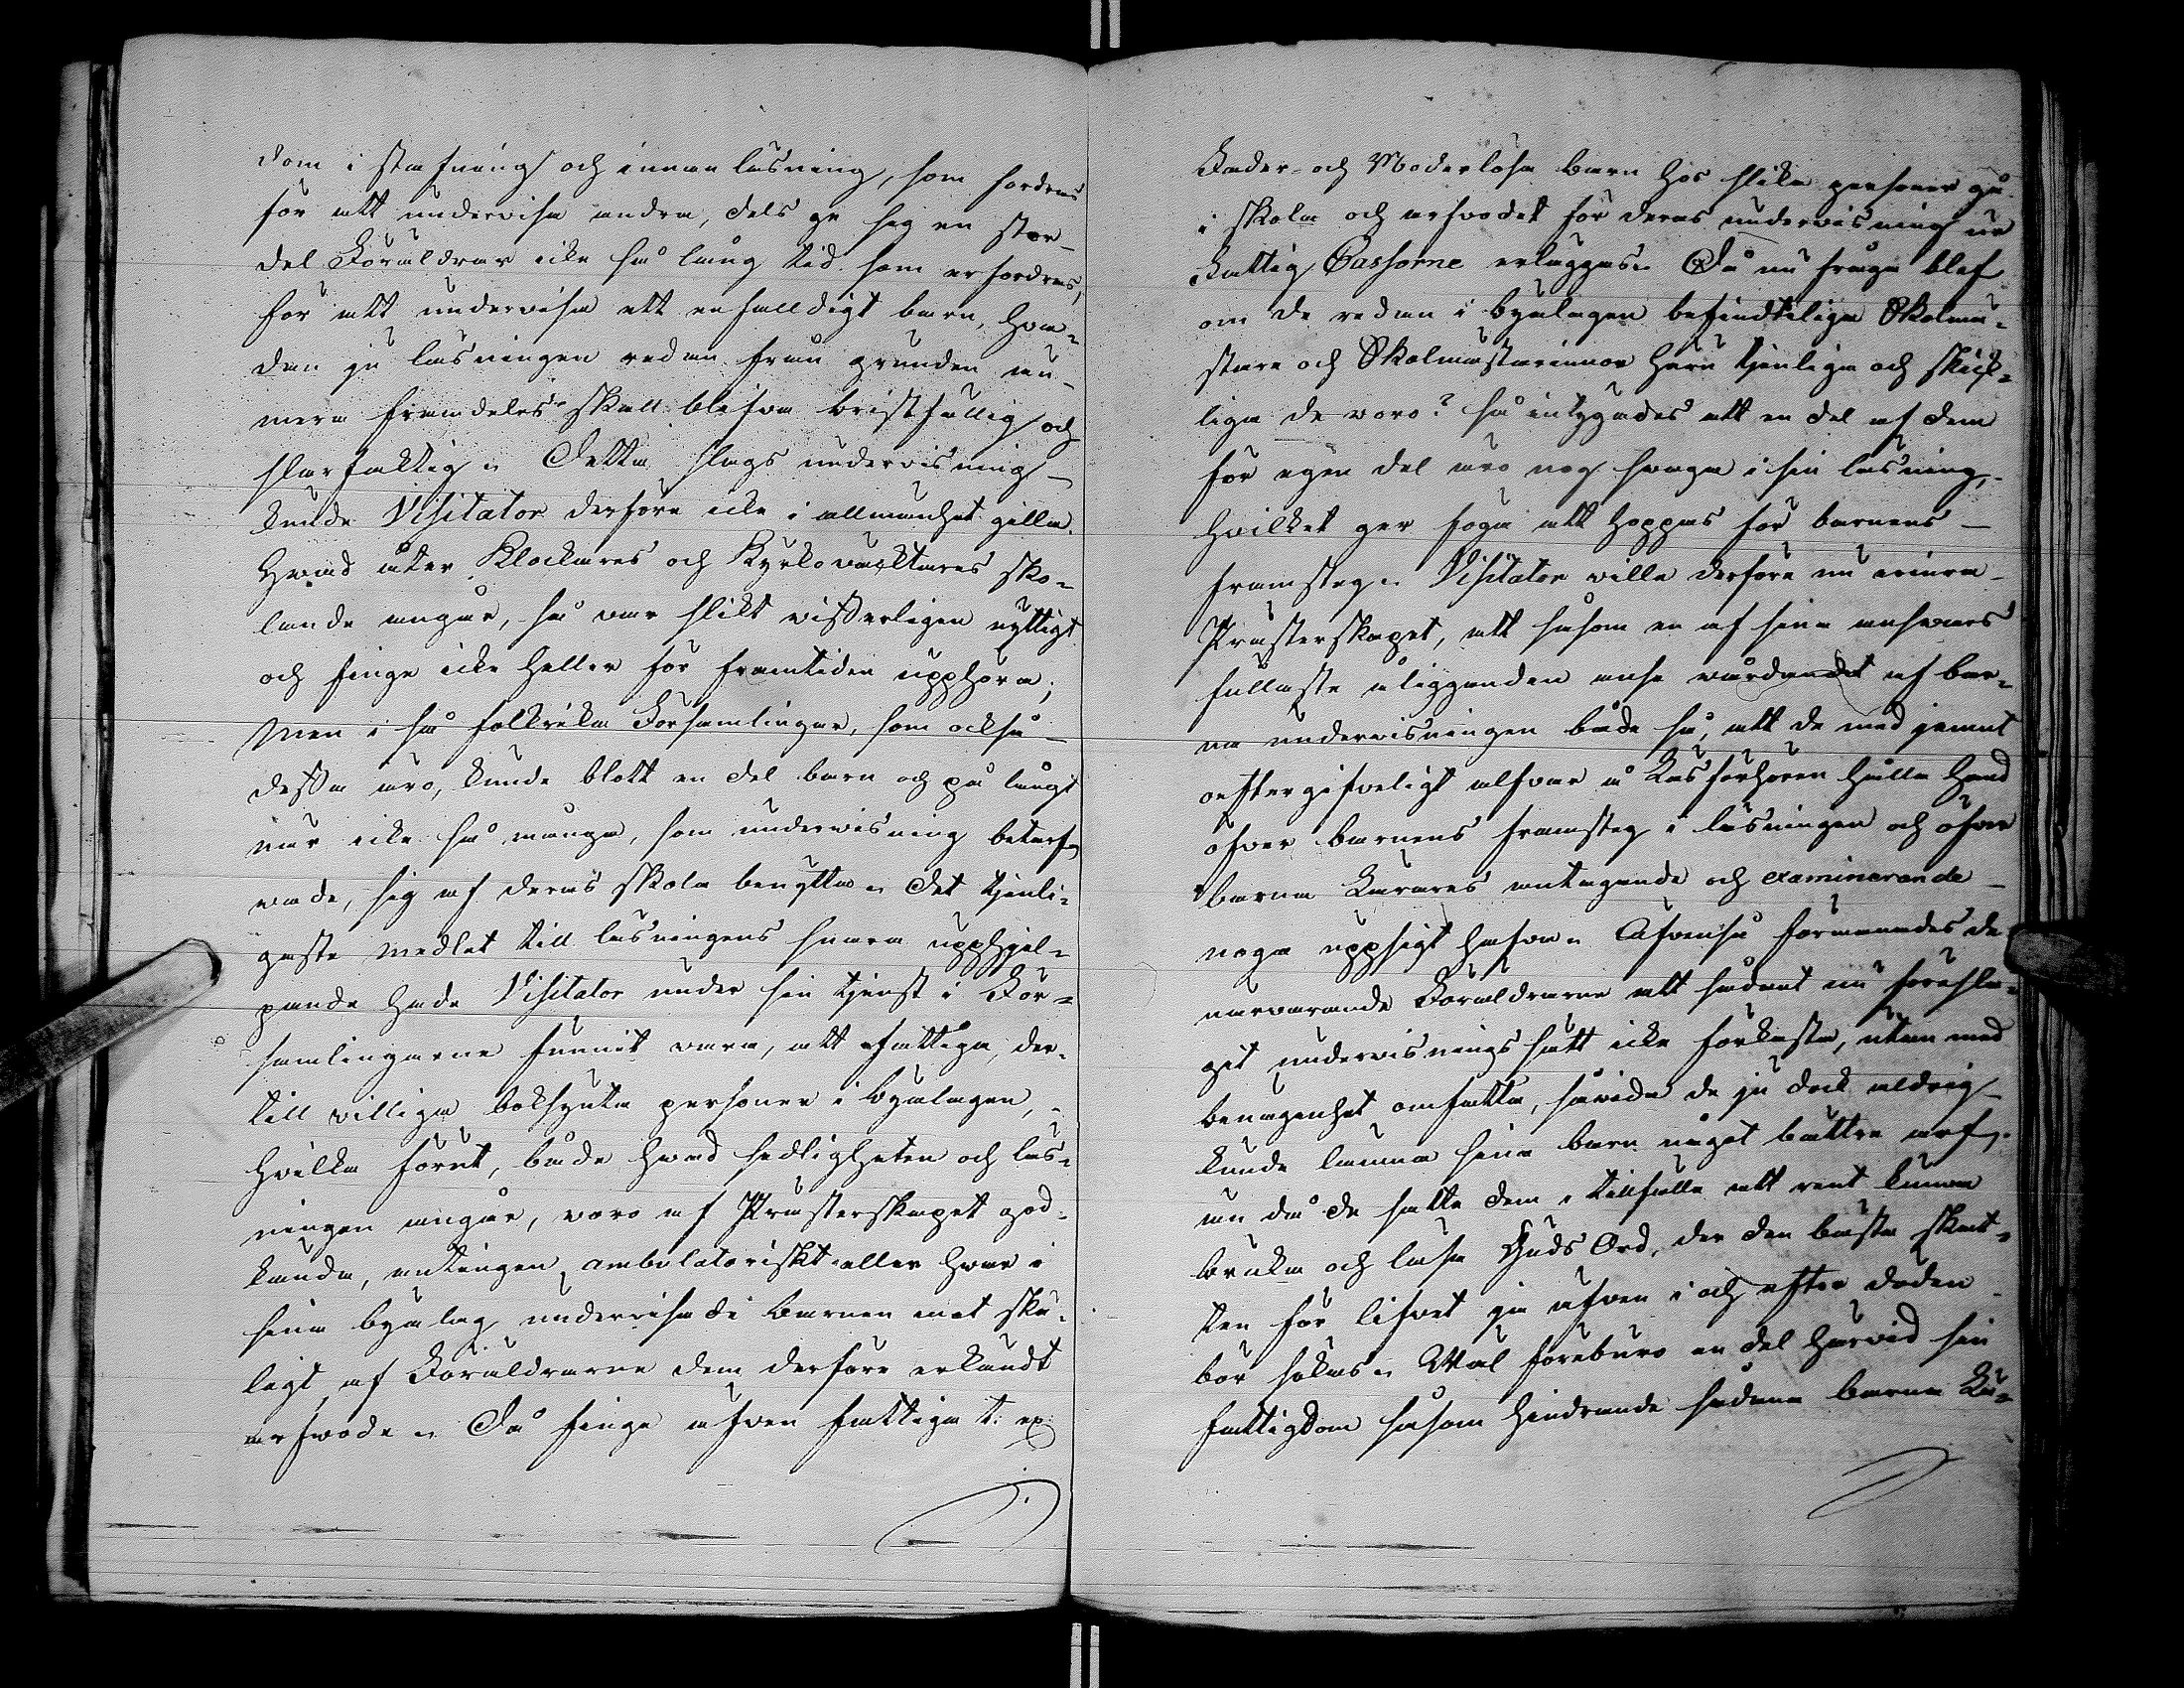 dom i stafning och innan läsning, som fordras
för att undervisa andra, dels ge sig en stor
del Föräldrar icke så lång tid som erfordras,
för att undervisa ett enfalldigt barn, hva-
dan ju läsningen redan från grunden nu-
mera framdeles skall blifva bristfällig och
slarfaktig. Detta slags undervisning
kunde Visitator derföre icke i allmänhet gilla.
Hvad åter Klockares och Kyrkovacktares sko-
lande angår, så var slikt visserligen nyttigt
och finge icke heller för framtiden upphöra;
Men i så folkrika Församlingar, som också
dessa äro, kunde blott en del barn och på långt
när icke så många, som undervisning betarf-
vade, sig af deras skola benyttia. Det tjenli-
gaste medlet till läsningens snara upphjel-
pande hade Visitator under sin tjenst i För-
samlingarne funnit vara, att fattiga, der-
till villiga boksynta personer i byalagen,
hvilka förut, både hvad sedligheten och läs-
ningen angår, voro af Prästerskapet god-
kända, antingen ambulatoriskt eller hvar i
sina byalag undervisade Barnen mot skä-
ligt af Föräldrarne dem derföre erkändt
arfvode. Då finge äfven fattiga t. ex.
Fader- och Moderlösa barn hos slika personer gå
i skola och arfvodet för deras undervisning ur
Fattig Cassorne erläggas. Då nu fråga blef
om de redan i byalagen befindtliga Skolmä-
stare och Skolmästarinnor häri tjenliga och skick-
liga de voro? så intygades att en del af dem
för egen del äro nog svaga i sin läsning,
hvilket ger föga att hoppas för barnens
framsteg. Visitator ville derföre nu erinra
Prästerskapet, att såsom en af sina ansvars
fullaste åligganden anse vårdandet af bar-
na undervisningen både så, att de med jemnt
oeftergifveligt alfvar å Läsförhören hålla hand
öfver barnens framsteg i läsningen och öfver
barna Lärares antagande och examinerande
noga uppsigt hafva. Äfvenså förmanades de
närvarande Föräldrarne att sådant nu föresla-
git undervisnings sätt icke förkasta, utan med
benägenhet omfatta, såvida de ju dock aldrig
kunde lämna sina barn något bättre arf,
än då de satte dem i tillfälle att rent kunna
bruka och läsa Guds Ord, der den bästa skat-
ten för lifvet ja äfven i och efter döden
bör sökas. Wäl föreburo en del härvid sin
fattigdom såsom hindrande sådana barna Lä-